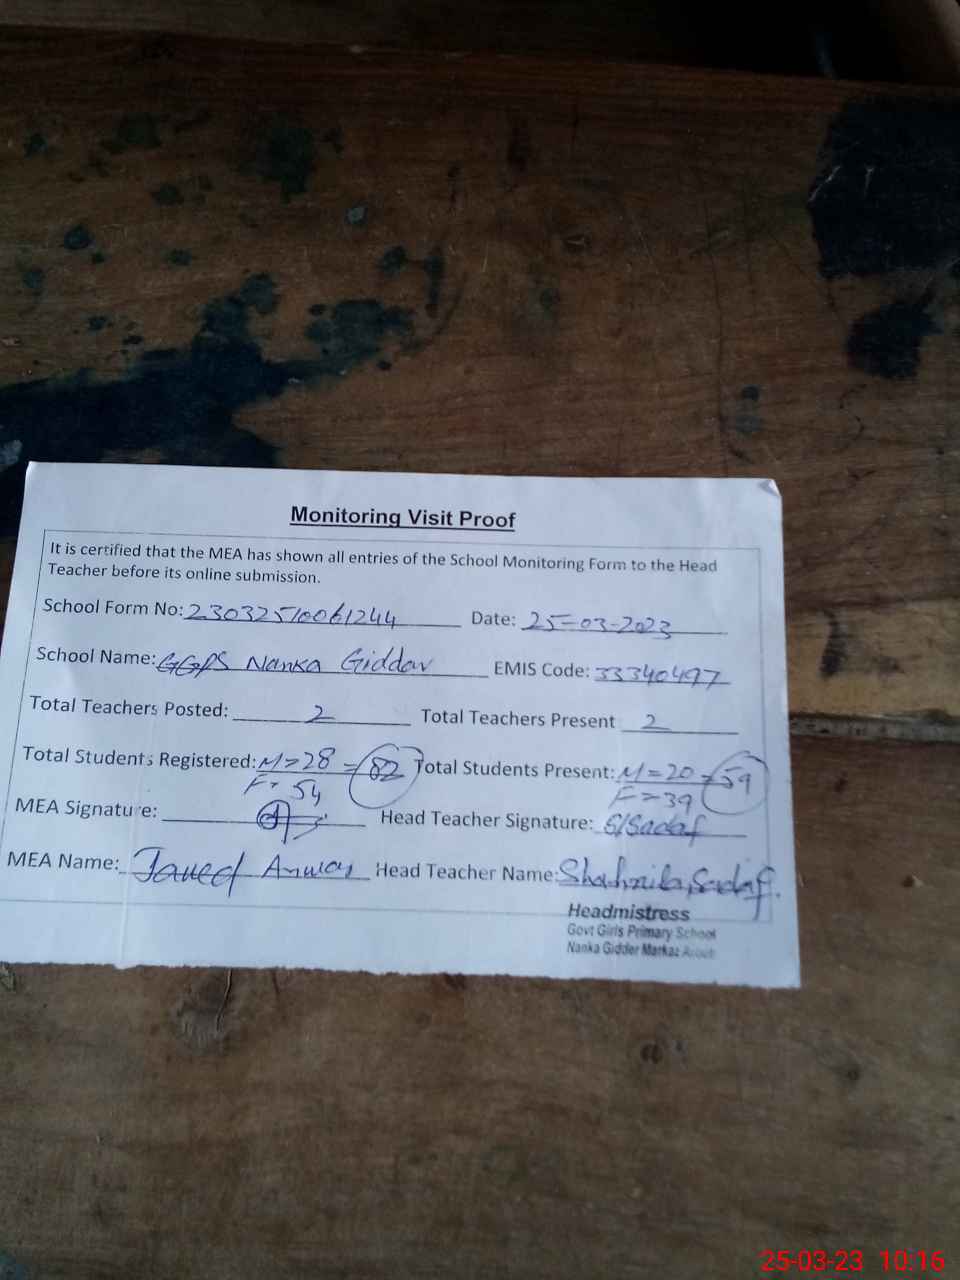 Monitoring Visit Proof
It is certified that the MEA has shown all entries of the School Monitoring Form to the Head
Teacher before its online submission.
School Form No: 23032510061244 Date: 25-03-2023
School Name: GGPS Nanka Giddar EMIS Code: 33340497
Total Teachers Posted: 2 Total Teachers Present 2
Total Students Registered: M=28 = 82 Total Students Present: M=20 = 59
F=54 F=39
MEA Signature: Head Teacher Signature: S/Sadaf
MEA Name: Javed Anwar Head Teacher Name: Sadaf.
Headmistress
Govt Girls Primary School
Nanka Gidder Markaz
25-03-23 10:16